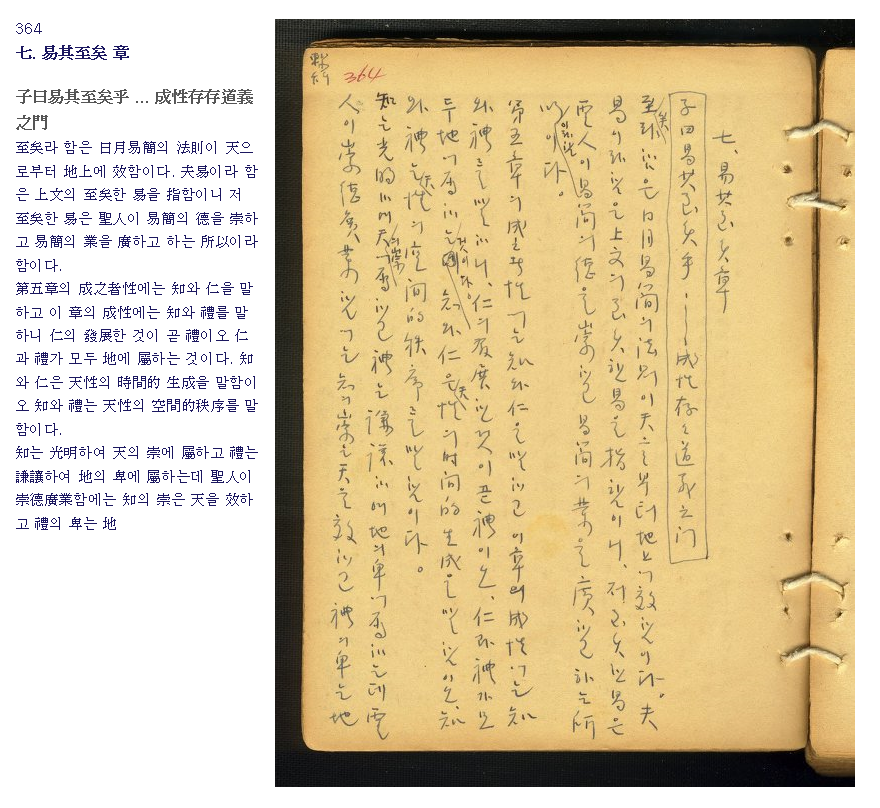 364
七. 易其至矣 章
子曰易其至矣乎 ... 成性存存道義
之門
至矣라 함은 日月易簡의 法則이 天으
로부터 地上에 效함이다. 夫易이라 함
은 上文의 至矣한 易을 指함이니 저
至矣한 易은 聖人이 易簡의 德을 崇하
고 易簡의 業을 廣하고 하는 所以이라
함이다.
第五章의 成之者性에는 知와 仁을 말
하고 이 章의 成性에는 知와 禮를 말
하니 仁의 發展한 것이 곧 禮이오 仁
과 禮가 모두 地에 屬하는 것이다. 知
와 仁은 天性의 時間的 生成을 말함이
오 知와 禮는 天性의 空間的秩序를 말
함이다.
知는 光明하여 天의 崇에 屬하고 禮는
謙讓하여 地의 卑에 屬하는데 聖人이
崇德廣業함에는 知의 崇은 天을 效하
고 禮의 卑는 地
364
七、易其至矣章
子曰易其至矣乎……成性存々道義之门
至矣라 함은 日月易簡의 法則이 天으로부터 地上에 效함이다。夫
易이라 함은 上文의 至矣한 易을 指함이니、저 至矣한 易은
聖人이 易簡의 德을 崇하고 易簡의 業을 廣하고 하는 所
以이라 함이다。
第五章의 成之者性에는 知와 仁을 말하고 이 章의 成性에는 知
와 禮를 말하니、仁의 發展한 것이 곧 禮이오、仁과 禮가 모
두 地에 屬하는 것이다。知와 仁은 天性의 时间的 生成을 말함이오、知
와 禮는 天性의 空间的 秩序를 말함이다。
知는 光明하여 天의 崇에 屬하고 禮는 謙讓하여 地의 卑에 屬하는데 聖
人이 崇德廣業함에는 知의 崇은 天을 效하고 禮의 卑는 地